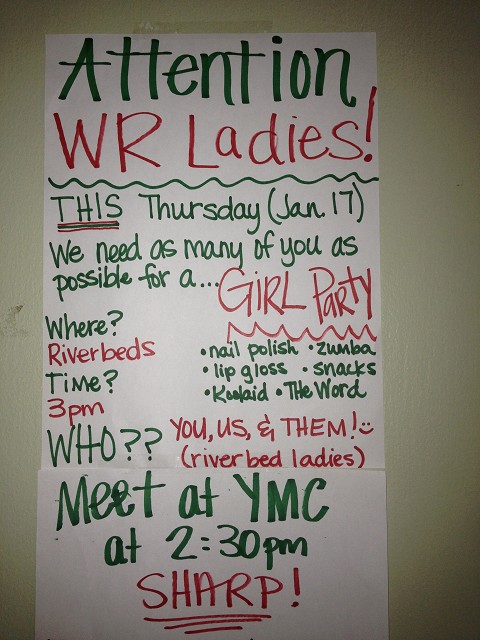 Attention
WR Ladies!
THIS Thursday (Jan. 17)
We need as many of you as
possible for a... GIRL PARTY
Where?
Riverbeds
Time?
3pm
• nail polish • zumba
• lip gloss • snacks
• Koolaid • The Word
WHO?? YOU, US, & THEM! :)
(riverbed ladies)
Meet at YMC
at 2:30pm
SHARP!